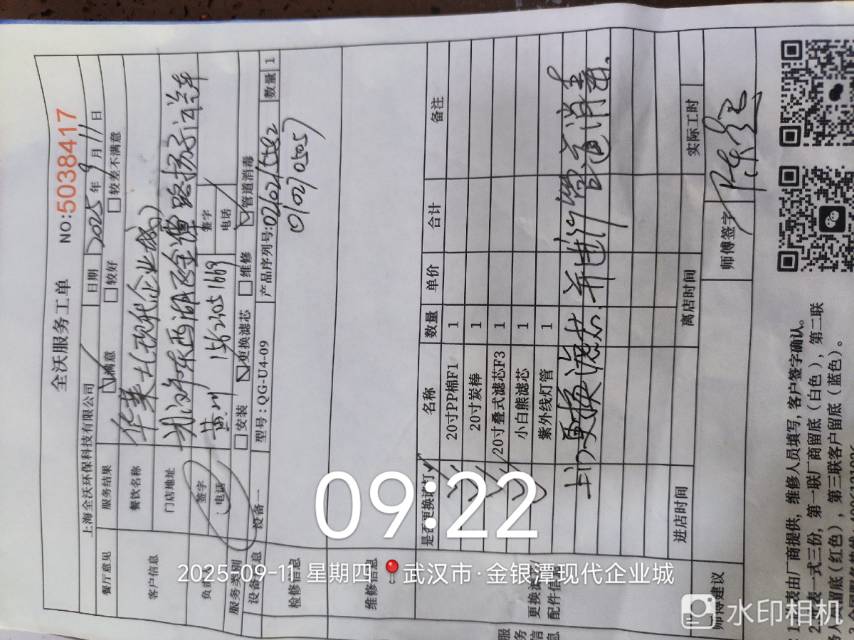 全沃服务工单
NO:5038417
上海全沃环保科技有限公司
日期 2025年9月11日
餐厅意见 服务结果 满意 较好 较差不满意
客户信息 餐饮名称 华莱士(现代企业城店)
门店地址 武汉市东西湖区金潭路扬子汽车
签字
电话 15623051669
签字
电话
服务类别 安装 更换滤芯 维修 管道消毒
设备信息 设备一 型号:QG-U4-09 产品序列号: 数量 1
0102705057
检修信息
维修信息
名称 数量 单价 合计 备注
20寸PP棉F1 1
20寸炭棒 1
20寸叠式滤芯F3 1
小白熊滤芯 1
紫外线灯管 1
更换滤芯并进行管道消毒.
进店时间 离店时间 实际工时
师傅建议 师傅签字
表由厂商提供,维修人员填写,客户签字确认。
表一式三份,第一联厂商留底(白色),第二联
人留底(红色),第三联客户留底(蓝色)。
09:22
2025-09-11 星期四 武汉市·金银潭现代企业城
水印相机